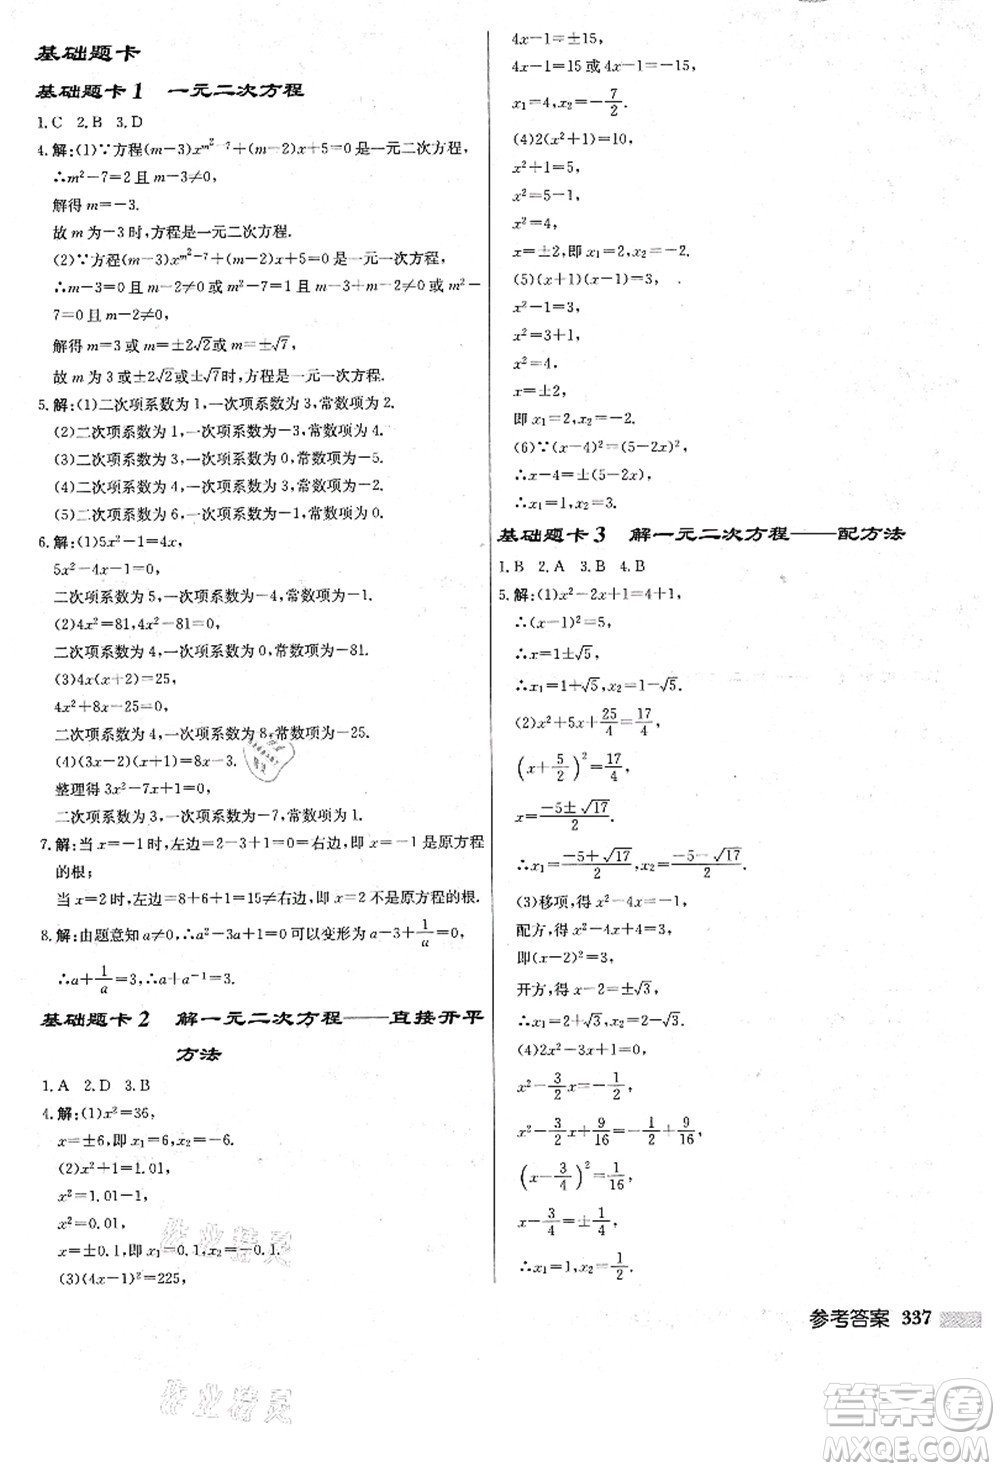 基础题卡
基础题卡1 一元二次方程
1.C 2.B 3.D
4.解:(1)∵方程(m-3)x^{m²-7}+(m-2)x+5=0是一元二次方程,
∴m²-7=2且m-3≠0,
解得m=-3.
故m为-3时,方程是一元二次方程.
(2)∵方程(m-3)x^{m²-7}+(m-2)x+5=0是一元一次方程,
∴m-3=0且m-2≠0或m²-7=1且m-3+m-2≠0或m²-
7=0且m-2≠0,
解得m=3或m=±2√2或m=±√7,
故m为3或±2√2或±√7时,方程是一元一次方程.
5.解:(1)二次项系数为1,一次项系数为3,常数项为2.
(2)二次项系数为1,一次项系数为-3,常数项为4.
(3)二次项系数为2,一次项系数为0,常数项为-5.
(4)二次项系数为2,一次项系数为3,常数项为-2.
(5)二次项系数为6,一次项系数为-1,常数项为0.
6.解:(1)5x²-1=4x,
5x²-4x-1=0,
二次项系数为5,一次项系数为-4,常数项为-1.
(2)4x²=81,4x²-81=0,
二次项系数为4,一次项系数为0,常数项为-81.
(3)4x(x+2)=25,
4x²+8x-25=0,
二次项系数为4,一次项系数为8,常数项为-25.
(4)(3x-2)(x+1)=8x-3.
整理得3x²-7x+1=0,
二次项系数为3,一次项系数为-7,常数项为1.
7.解:当x=-1时,左边=2-3+1=0=右边,即x=-1是原方程
的根;
当x=2时,左边=8+6+1=15≠右边,即x=2不是原方程的根.
8.解:由题意知a≠0,∴a²-3a+1=0可以变形为a-3+1/a=0,
∴a+1/a=3,即a+a⁻¹=3.
基础题卡2 解一元二次方程——直接开平
方法
1.A 2.D 3.B
4.解:(1)x²=36,
x=±6,即x₁=6,x₂=-6.
(2)x²+1=1.01,
x²=1.01-1,
x²=0.01,
x=±0.1,即x₁=0.1,x₂=-0.1.
(3)(4x-1)²=225,
4x-1=±15,
4x-1=15或4x-1=-15,
x₁=4,x₂=-7/2.
(4)2(x²+1)=10,
x²+1=5,
x²=5-1,
x²=4,
x=±2,即x₁=2,x₂=-2.
(5)(x+1)(x-1)=3,
x²-1=3,
x²=3+1,
x²=4.
x=±2,
即x₁=2,x₂=-2.
(6)∵(x-4)²=(5-2x)²,
∴x-4=±(5-2x),
∴x₁=1,x₂=3.
基础题卡3 解一元二次方程——配方法
1.B 2.A 3.B 4.B
5.解:(1)x²-2x+1=4+1,
∴(x-1)²=5,
∴x=1±√5,
∴x₁=1+√5,x₂=1-√5.
(2)x²+5x+25/4=17/4,
(x+5/2)²=17/4,
x=(-5±√17)/2.
∴x₁=(-5+√17)/2,x₂=(-5-√17)/2.
(3)移项,得x²-4x=-1,
配方,得x²-4x+4=-1+4,
即(x-2)²=3,
开方,得x-2=±√3,
∴x₁=2+√3,x₂=2-√3.
(4)2x²-3x+1=0,
x²-3/2x=-1/2,
x²-3/2x+9/16=-1/2+9/16,
(x-3/4)²=1/16,
x-3/4=±1/4,
∴x₁=1,x₂=1/2.
参考答案 337
作业精灵
作业精灵
答案圈
MXQE.COM